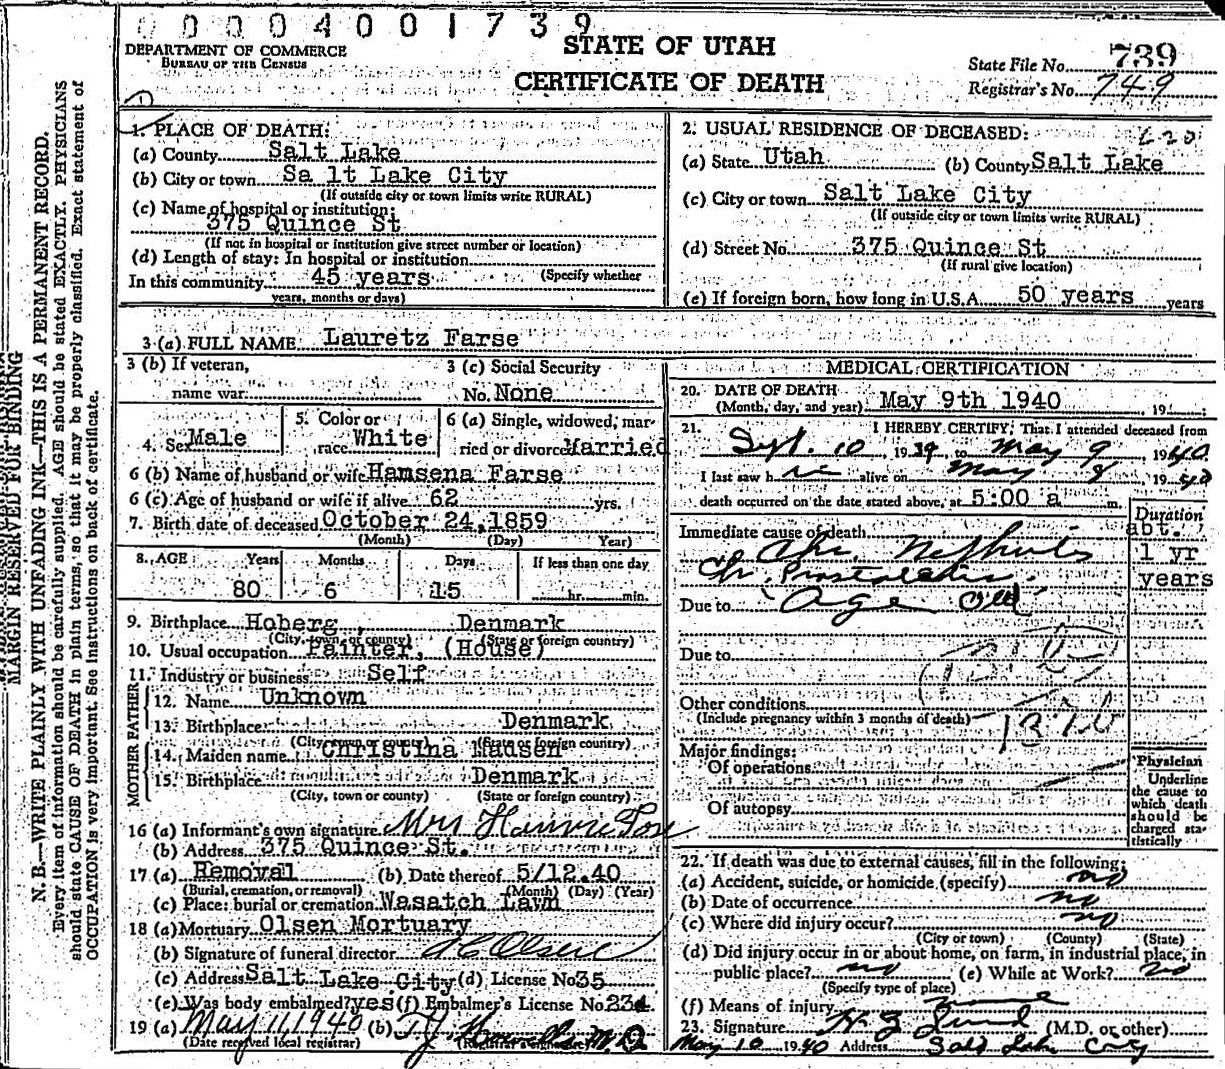 0000401739
DEPARTMENT OF COMMERCE
BUREAU OF THE CENSUS
STATE OF UTAH
CERTIFICATE OF DEATH
State File No. 739
Registrar's No. 749
1. PLACE OF DEATH:
(a) County Salt Lake
(b) City or town Sa lt Lake City
(If outside city or town limits write RURAL)
(c) Name of hospital or institution:
375 Quince St
(If not in hospital or institution give street number or location)
(d) Length of stay: In hospital or institution
In this community 45 years (Specify whether
years, months or days)
2. USUAL RESIDENCE OF DECEASED:
(a) State Utah (b) County Salt Lake
(c) City or town Salt Lake City
(If outside city or town limits write RURAL)
(d) Street No. 375 Quince St
(If rural give location)
(e) If foreign born, how long in U.S.A. 50 years years
3 (a) FULL NAME Lauretz Farse
3 (b) If veteran,
name war
3 (c) Social Security
No. None
4. Sex Male
5. Color or
race White
6 (a) Single, widowed, mar-
ried or divorced Married
6 (b) Name of husband or wife Hansena Farse
6 (c) Age of husband or wife if alive 62 yrs.
7. Birth date of deceased October 24, 1859
(Month) (Day) Year)
8. AGE Years Months Days If less than one day
80 6 15 hr. min.
9. Birthplace Hoberg, Denmark
(City, town, or county) (State or foreign country)
10. Usual occupation Painter, (House)
11. Industry or business Self
FATHER
12. Name Unknown
13. Birthplace Denmark
(City, town or county) (State or foreign country)
MOTHER
14. Maiden name Christina Hausen
15. Birthplace Denmark
(City, town or county) (State or foreign country)
16 (a) Informant's own signature Mrs
(b) Address 375 Quince St.
17 (a) Removal (b) Date thereof 5/12.40
(Burial, cremation, or removal) (Month) (Day) (Year)
(c) Place: burial or cremation Wasatch Lawn
18 (a) Mortuary Olsen Mortuary
(b) Signature of funeral director
(c) Address Salt Lake City (d) License No 35
(e) Was body embalmed? yes (f) Embalmer's License No. 234
19 (a) May 11, 1940 (b) T.J. Howells M.D.
(Date received local registrar) (Registrar's signature)
MEDICAL CERTIFICATION
20. DATE OF DEATH
(Month, day, and year) May 9th 1940, 19
21. I HEREBY CERTIFY, That I attended deceased from
Sept. 10, 1939, to May 9, 1940.
I last saw him alive on May 8, 1940
death occurred on the date stated above, at 5:00 a m.
Duration
Immediate cause of death abt.
Chr. Nephritis 1 yr
Chr. Prostatitis years
Due to Age Old
Due to
Other conditions
(Include pregnancy within 3 months of death)
Major findings:
Of operations
Of autopsy
Physician
Underline
the cause to
which death
should be
charged sta-
tistically
22. If death was due to external causes, fill in the following:
(a) Accident, suicide, or homicide (specify) no
(b) Date of occurrence no
(c) Where did injury occur? no
(City or town) (County) (State)
(d) Did injury occur in or about home, on farm, in industrial place, in
public place? no (e) While at Work? No
(Specify type of place)
(f) Means of injury
23. Signature (M.D. or other)
May 10 1940 Address Salt Lake City
MARGIN RESERVED FOR BINDING
N. B.—WRITE PLAINLY WITH UNFADING INK—THIS IS A PERMANENT RECORD.
Every item of information should be carefully supplied. AGE should be stated EXACTLY. PHYSICIANS
should state CAUSE OF DEATH in plain terms, so that it may be properly classified. Exact statement of
OCCUPATION is very important. See instructions on back of certificate.